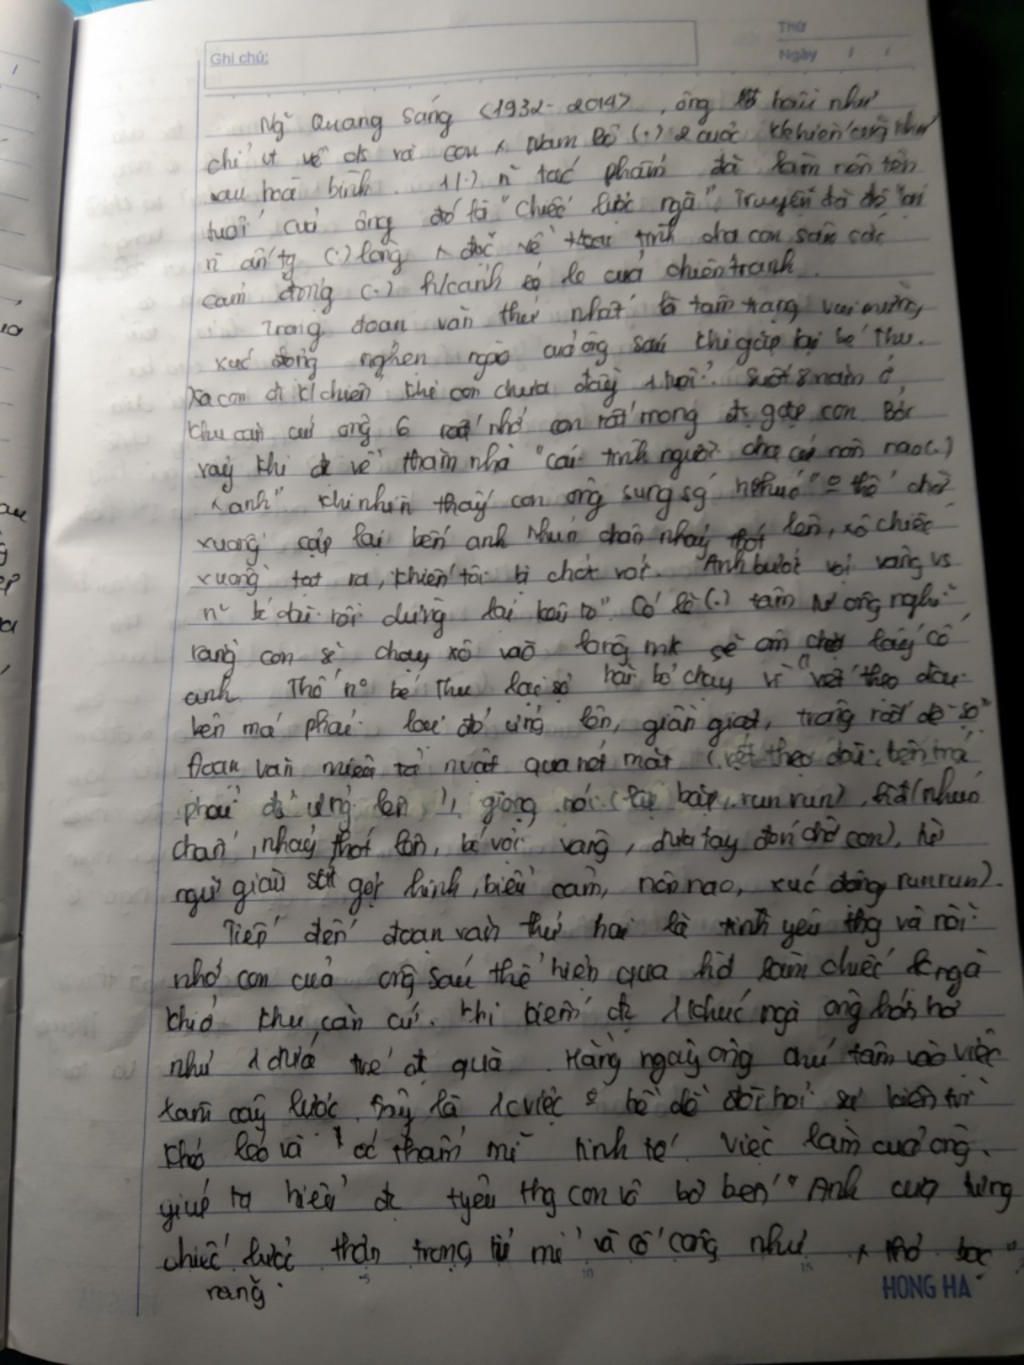 Ghi chú:
Thứ
Ngày / /
Ng~ Quang Sáng (1932-2014), ông hầu như
chỉ vt về cs và con Nam Bộ (.) 2 cuộc kháng chiến cũng như
sau hoà bình. 1 (.) n tác phẩm đã làm nên tên
tuổi của ông đó là "chiếc lược ngà", Truyện đã để lại
n ấn tg (.) lòng đọc về tình cha con sâu sắc
cảm động (.) h/cảnh éo le của chiến tranh.
Trong đoạn văn thứ nhất là tâm trạng vui mừng,
xúc động nghẹn ngào của ông Sáu khi gặp lại bé Thu.
Xa con đi k/chiến khi con chưa đầy 1 tuổi. Suốt 8 năm ở
khu căn cứ ông 6 rất nhớ con rất mong đc gặp con. Bởi
vậy khi đc về thăm nhà "cái tình người cha cứ nôn nao (.)
anh" khi nhìn thấy con ông sung sg thể chờ
xuồng cập lại bến anh nhún chân nhảy thót lên, xô chiếc
xuồng tạt ra, khiến tôi bị chới với. "Anh bước vội vàng vs
n~ bc dài rồi dừng lại kêu to" Có lẽ (.) tâm tư ông nghĩ
rằng con sẽ chạy xô vào lòng mk sẽ ôm chặt lấy cổ
anh. Thế nº bé Thu lại sợ hãi bỏ chạy vì "vết thẹo dài
bên má phải lại đỏ ửng lên, giần giật, trông rất dễ sợ"
Đoạn văn miêu tả n vật qua nét mặt (vết thẹo dài bên má
phải đỏ ửng lên), giọng nói (lặp bặp, run run), hđ (nhún
chân, nhảy thót lên, bc vội vàng, đưa tay đón chờ con),
ngữ giàu sức gợi hình, biểu cảm, nôn nao, xúc động, run run).
Tiếp đến đoạn văn thứ hai là tình yêu thg và nỗi
nhớ con của ông Sáu thể hiện qua hđ làm chiếc lc ngà
khi ở khu căn cứ. Khi kiếm đc 1 khúc ngà ông hớn hở
như 1 đứa trẻ đc quà. Hằng ngày ông chú tâm vào việc
làm cây lược. Đây là 1 việc đòi hỏi sự kiên trì
khó léo và óc thẩm mĩ tinh tế. Việc làm của ông
giúp ta hiểu đc tyêu thg con vô bờ bến "Anh cưa từng
chiếc lược thận trọng tỉ mỉ và cố công như thợ bạc"
rằng
HONG HA